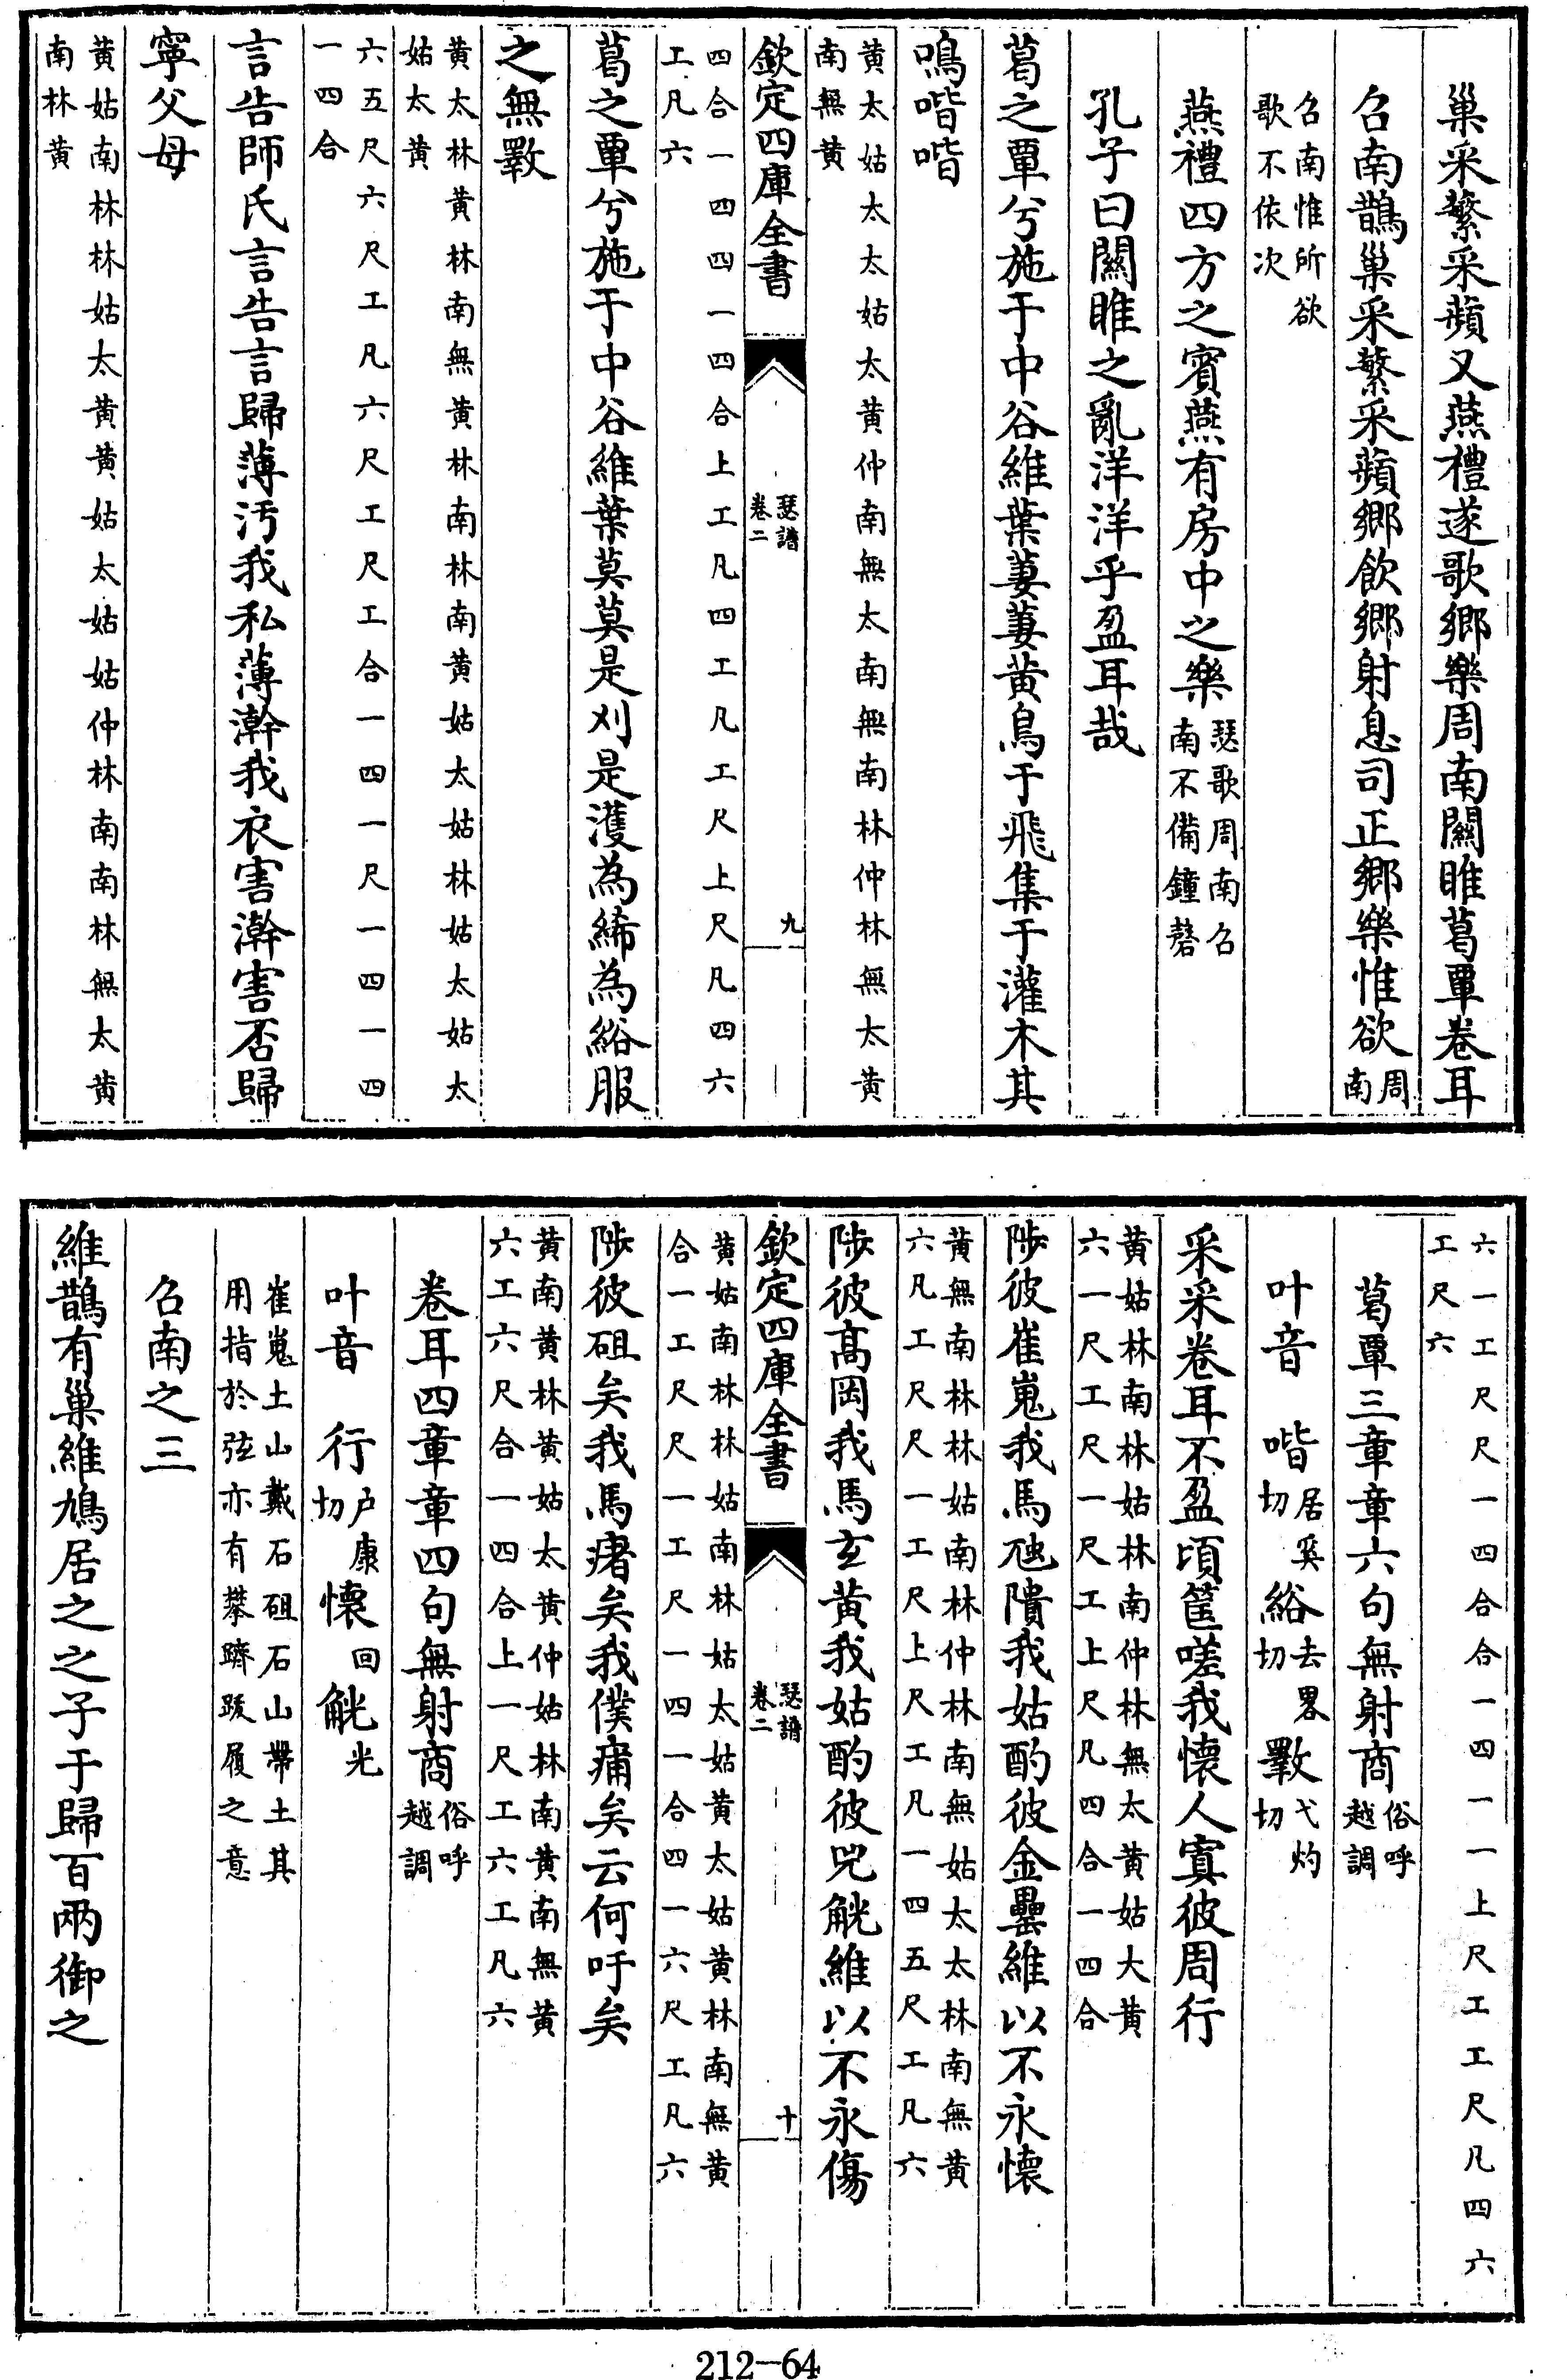 巢采蘩采蘋又燕禮遂歌鄉樂周南關睢葛覃卷耳
召南鵲巢采蘩采蘋鄉飲鄉射息司正鄉樂惟欲周南
召南惟所欲
歌不依次
燕禮四方之賓燕有房中之樂瑟歌周南召南不備鐘磬
孔子曰關睢之亂洋洋乎盈耳哉
葛之覃兮施于中谷維葉萋萋黃鳥于飛集于灌木其
鳴喈喈
黃太姑太太姑太黃仲南無太南無南林仲林無太黃
南無黃
欽定四庫全書
瑟譜
卷二
九
四合一四四一四合上工凡四工凡工尺上尺凡四六
工凡六
葛之覃兮施于中谷維葉莫莫是刈是濩為絺為綌服
之無斁
黃太林黃林南無黃林南林南黃姑太姑林姑太姑太
姑太黃
六五尺六尺工凡六尺工尺工合一四一尺一四一四
一四合
言告師氏言告言歸薄汚我私薄澣我衣害澣害否歸
寧父母
黃姑南林林姑太黃黃姑太姑姑仲林南南林無太黃
南林黃
六一工尺尺一四合合一四一一上尺工工尺凡四六
工尺六
葛覃三章章六句無射商俗呼越調
叶音 喈居奚切 綌去畧切 斁弋灼切
采采卷耳不盈頃筐嗟我懷人寘彼周行
黃姑林南林姑林南仲林無太黃姑大黃
六一尺工尺一尺工上尺凡四合一四合
陟彼崔嵬我馬虺隤我姑酌彼金罍維以不永懷
黃無南林林姑南林仲林南無姑太太林南無黃
六凡工尺尺一工尺上尺工凡一四五尺工凡六
陟彼髙岡我馬玄黃我姑酌彼兕觥維以不永傷
欽定四庫全書
瑟譜
卷二
十
黃姑南林林姑南林姑太姑黃太姑黃林南無黃
合一工尺尺一工尺一四一合四一六尺工凡六
陟彼砠矣我馬瘏矣我僕痡矣云何吁矣
黃南黃林黃姑太黃仲姑林南黃南無黃
六工六尺合一四合上一尺工六工凡六
卷耳四章章四句無射商俗呼越調
叶音 行户康切 懷回 觥光
崔嵬土山戴石砠石山帶土其
用指於弦亦有攀躋踐履之意
召南之三
維鵲有巢維鳩居之之子于歸百兩御之
212—64